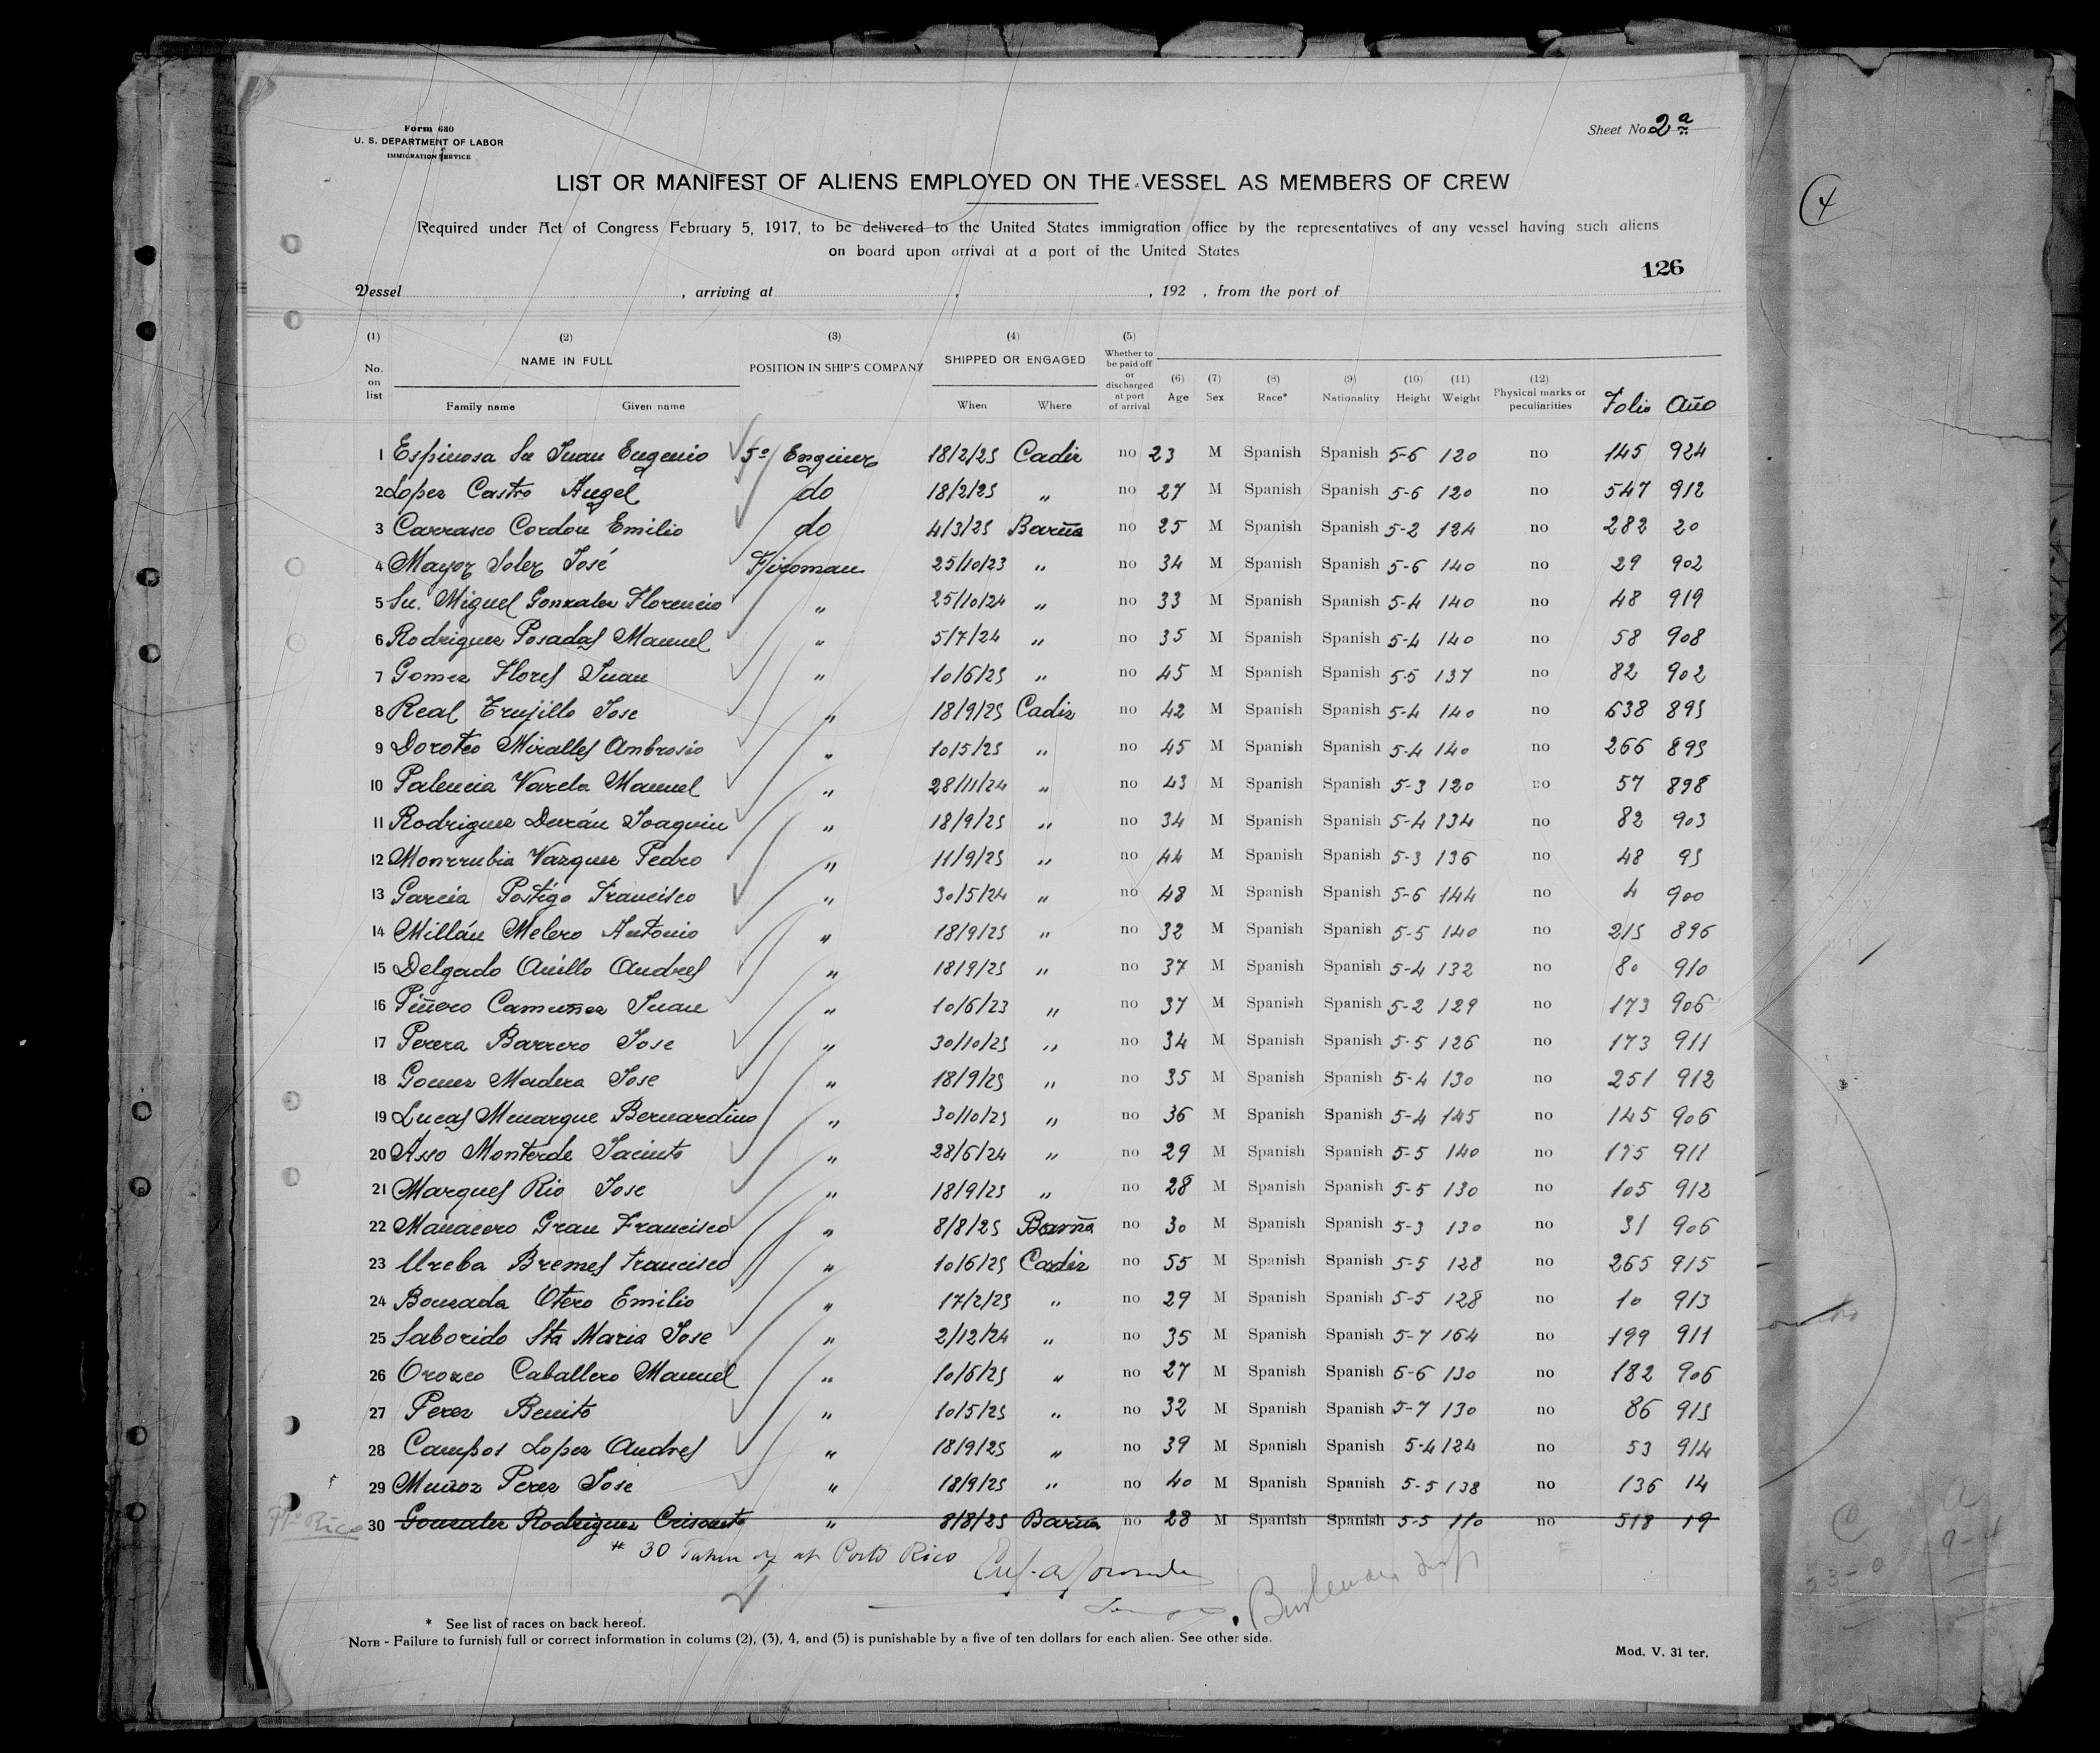 Form 680
U. S. DEPARTMENT OF LABOR
IMMIGRATION SERVICE
Sheet No. 2ª
LIST OR MANIFEST OF ALIENS EMPLOYED ON THE VESSEL AS MEMBERS OF CREW
Required under Act of Congress February 5, 1917, to be delivered to the United States immigration office by the representatives of any vessel having such aliens
on board upon arrival at a port of the United States
126
Vessel , arriving at , , 192 , from the port of
(1) (2) (3) (4) (5)
No. on list NAME IN FULL POSITION IN SHIP'S COMPANY SHIPPED OR ENGAGED Whether to be paid off or discharged at port of arrival (6) Age (7) Sex (8) Race* (9) Nationality (10) Height (11) Weight (12) Physical marks or peculiarities Folio Año
Family name Given name When Where
1 Espinosa Sn Juan Eugenio 5º Enginer 18/2/25 Cadiz no 23 M Spanish Spanish 5-6 120 no 145 924
2 Lopez Castro Angel do 18/2/25 " no 27 M Spanish Spanish 5-6 120 no 547 912
3 Carrasco Cordon Emilio do 4/3/25 Barña no 25 M Spanish Spanish 5-2 124 no 282 20
4 Mayor Soler José Fireman 25/10/23 " no 34 M Spanish Spanish 5-6 140 no 29 902
5 Sn. Miguel Gonzalez Florencio " 25/10/24 " no 33 M Spanish Spanish 5-4 140 no 48 919
6 Rodriguez Posadas Manuel " 5/7/24 " no 35 M Spanish Spanish 5-4 140 no 58 908
7 Gomez Flores Juan " 10/6/25 " no 45 M Spanish Spanish 5-5 137 no 82 902
8 Real Trujillo Jose " 18/9/25 Cadiz no 42 M Spanish Spanish 5-4 140 no 638 895
9 Doroteo Miralles Ambrosio " 10/5/25 " no 45 M Spanish Spanish 5-4 140 no 266 895
10 Palencia Varela Manuel " 28/11/24 " no 43 M Spanish Spanish 5-3 120 no 57 898
11 Rodriguez Durán Joaquin " 18/9/25 " no 34 M Spanish Spanish 5-4 134 no 82 903
12 Monrrubia Vazquez Pedro " 11/9/25 " no 44 M Spanish Spanish 5-3 136 no 48 95
13 Garcia Postigo Francisco " 30/5/24 " no 48 M Spanish Spanish 5-6 144 no 4 900
14 Millán Melero Antonio " 18/9/25 " no 32 M Spanish Spanish 5-5 140 no 215 896
15 Delgado Anillo Andres " 18/9/25 " no 37 M Spanish Spanish 5-4 132 no 80 910
16 Piñero Camuñez Juan " 10/6/23 " no 37 M Spanish Spanish 5-2 129 no 173 906
17 Perera Barrero Jose " 30/10/25 " no 34 M Spanish Spanish 5-5 126 no 173 911
18 Gomez Madera Jose " 18/9/25 " no 35 M Spanish Spanish 5-4 130 no 251 912
19 Lucas Menargue Bernardino " 30/10/25 " no 36 M Spanish Spanish 5-4 145 no 145 906
20 Asso Monterde Jacinto " 28/6/24 " no 29 M Spanish Spanish 5-5 140 no 175 911
21 Marques Rio Jose " 18/9/25 " no 28 M Spanish Spanish 5-5 130 no 105 912
22 Manacero Grau Francisco " 8/8/25 Barña no 30 M Spanish Spanish 5-3 130 no 31 906
23 Ureba Bremes Francisco " 10/6/25 Cadiz no 55 M Spanish Spanish 5-5 128 no 265 915
24 Bouzada Otero Emilio " 17/2/25 " no 29 M Spanish Spanish 5-5 128 no 10 913
25 Saborido Sta Maria Jose " 2/12/24 " no 35 M Spanish Spanish 5-7 164 no 199 911
26 Orozco Caballero Manuel " 10/6/25 " no 27 M Spanish Spanish 5-6 130 no 182 906
27 Perez Benito " 10/5/25 " no 32 M Spanish Spanish 5-7 130 no 86 915
28 Campos Lopez Andres " 18/9/25 " no 39 M Spanish Spanish 5-4 124 no 53 914
29 Muñoz Perez Jose " 18/9/25 " no 40 M Spanish Spanish 5-5 138 no 136 14
Pto Rico 30 Gonzalez Rodriguez Crisanto " 8/8/25 Barña no 28 M Spanish Spanish 5-5 110 no 518 19
# 30 Taken off at Porto Rico
* See list of races on back hereof.
NOTE - Failure to furnish full or correct information in colums (2), (3), 4, and (5) is punishable by a five of ten dollars for each alien. See other side.
Mod. V. 31 ter.